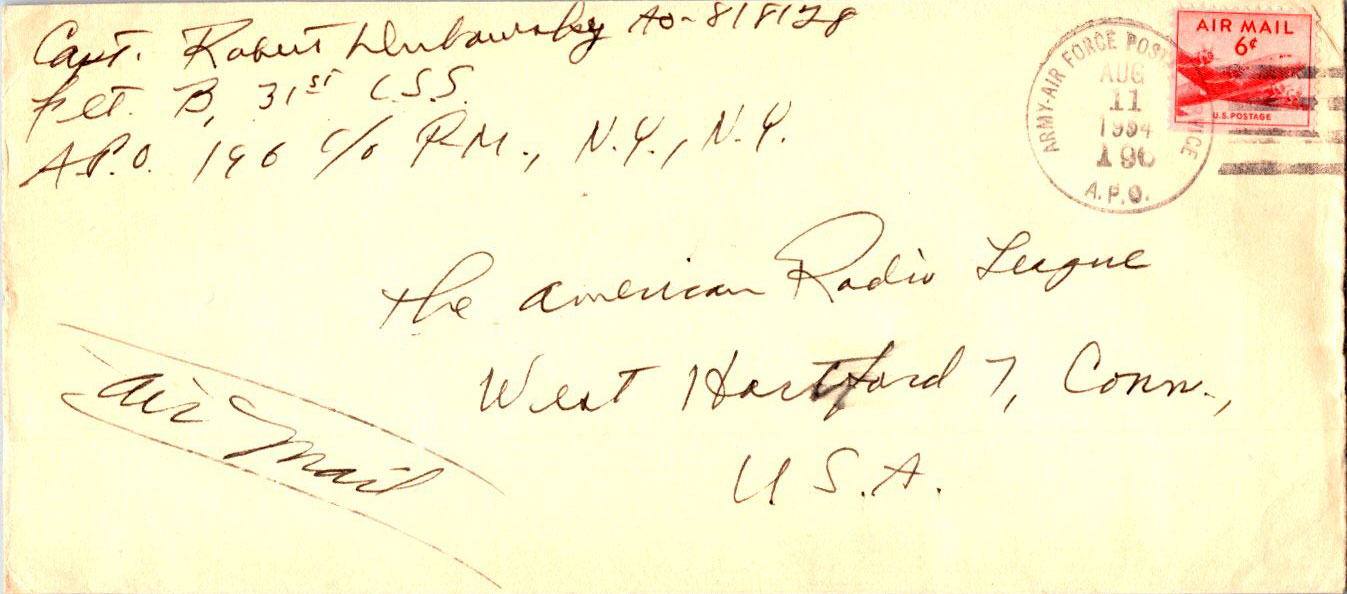 Capt. Robert Dubowsky AO-818128
Flt. B, 31st C.S.S.
A.P.O. 196 c/o P.M., N.Y., N.Y.
AIR MAIL
6¢
U.S. POSTAGE
ARMY-AIR FORCE POSTAL SERVICE
AUG
11
1954
196
A.P.O.
The American Radio League
West Hartford 7, Conn.,
U.S.A.
Air Mail